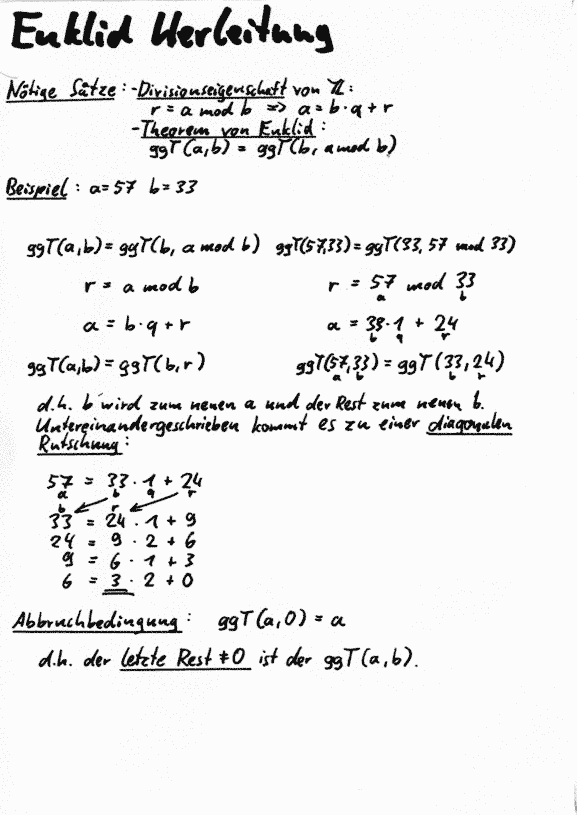 Euklid Herleitung
Nötige Sätze: -Divisionseigenschaft von ℤ:
r = a mod b => a = b·q + r
-Theorem von Euklid:
ggT(a,b) = ggT(b, a mod b)
Beispiel: a=57 b=33
ggT(a,b) = ggT(b, a mod b) ggT(57,33) = ggT(33, 57 mod 33)
r = a mod b r = 57 mod 33
a b
a = b·q + r a = 33·1 + 24
b q r
ggT(a,b) = ggT(b,r) ggT(57,33) = ggT(33,24)
a b b r
d.h. b wird zum neuen a und der Rest zum neuen b.
Untereinandergeschrieben kommt es zu einer diagonalen
Rutschung:
57 = 33 · 1 + 24
a b q r
b r
33 = 24 · 1 + 9
24 = 9 · 2 + 6
9 = 6 · 1 + 3
6 = 3 · 2 + 0
Abbruchbedingung: ggT(a,0) = a
d.h. der letzte Rest ≠0 ist der ggT(a,b).